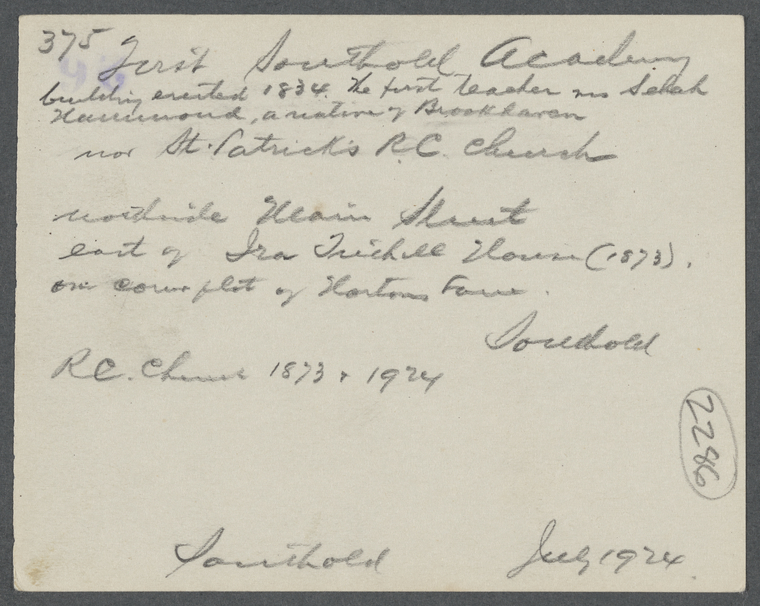 375 First Southold Academy
building erected 1834. The first teacher was Selah
Hammond, a native of Brookhaven
now St. Patrick's R.C. Church
northside Main Street
east of Ira Tuthill House (1873).
on corner plot of Hortons Lane.
Southold
R.C. Church 1873 & 1924
2286
Southold July 1924